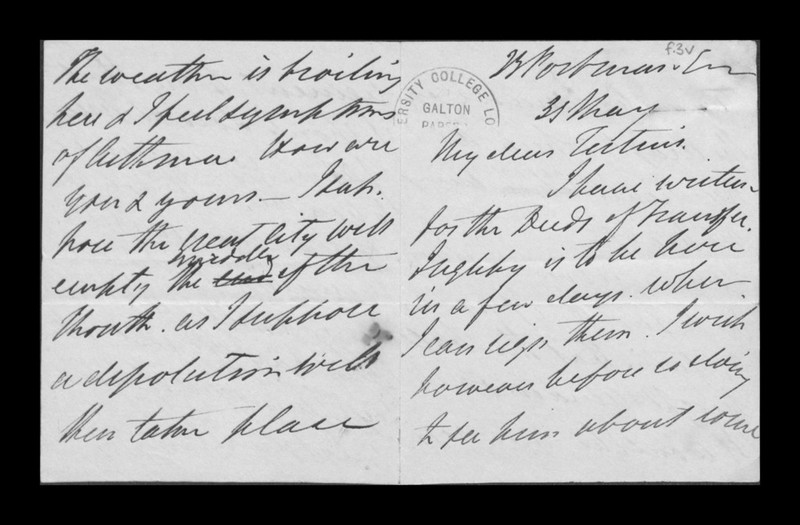 The weather is broiling
here & I feel symptoms
of Asthma. How are
you & yours – I sup.
pose the great City will
empty the middle of the
Month. as I suppose
a dissolution will
then take place
f.3v
Portman
31 May
My dear Tertius.
I have written
for the Deeds of Transfer.
is to be here
in a few days. when
I can sign them. I wish
however before so doing
to see him about some
ERSITY COLLEGE LO
GALTON
PAPERS